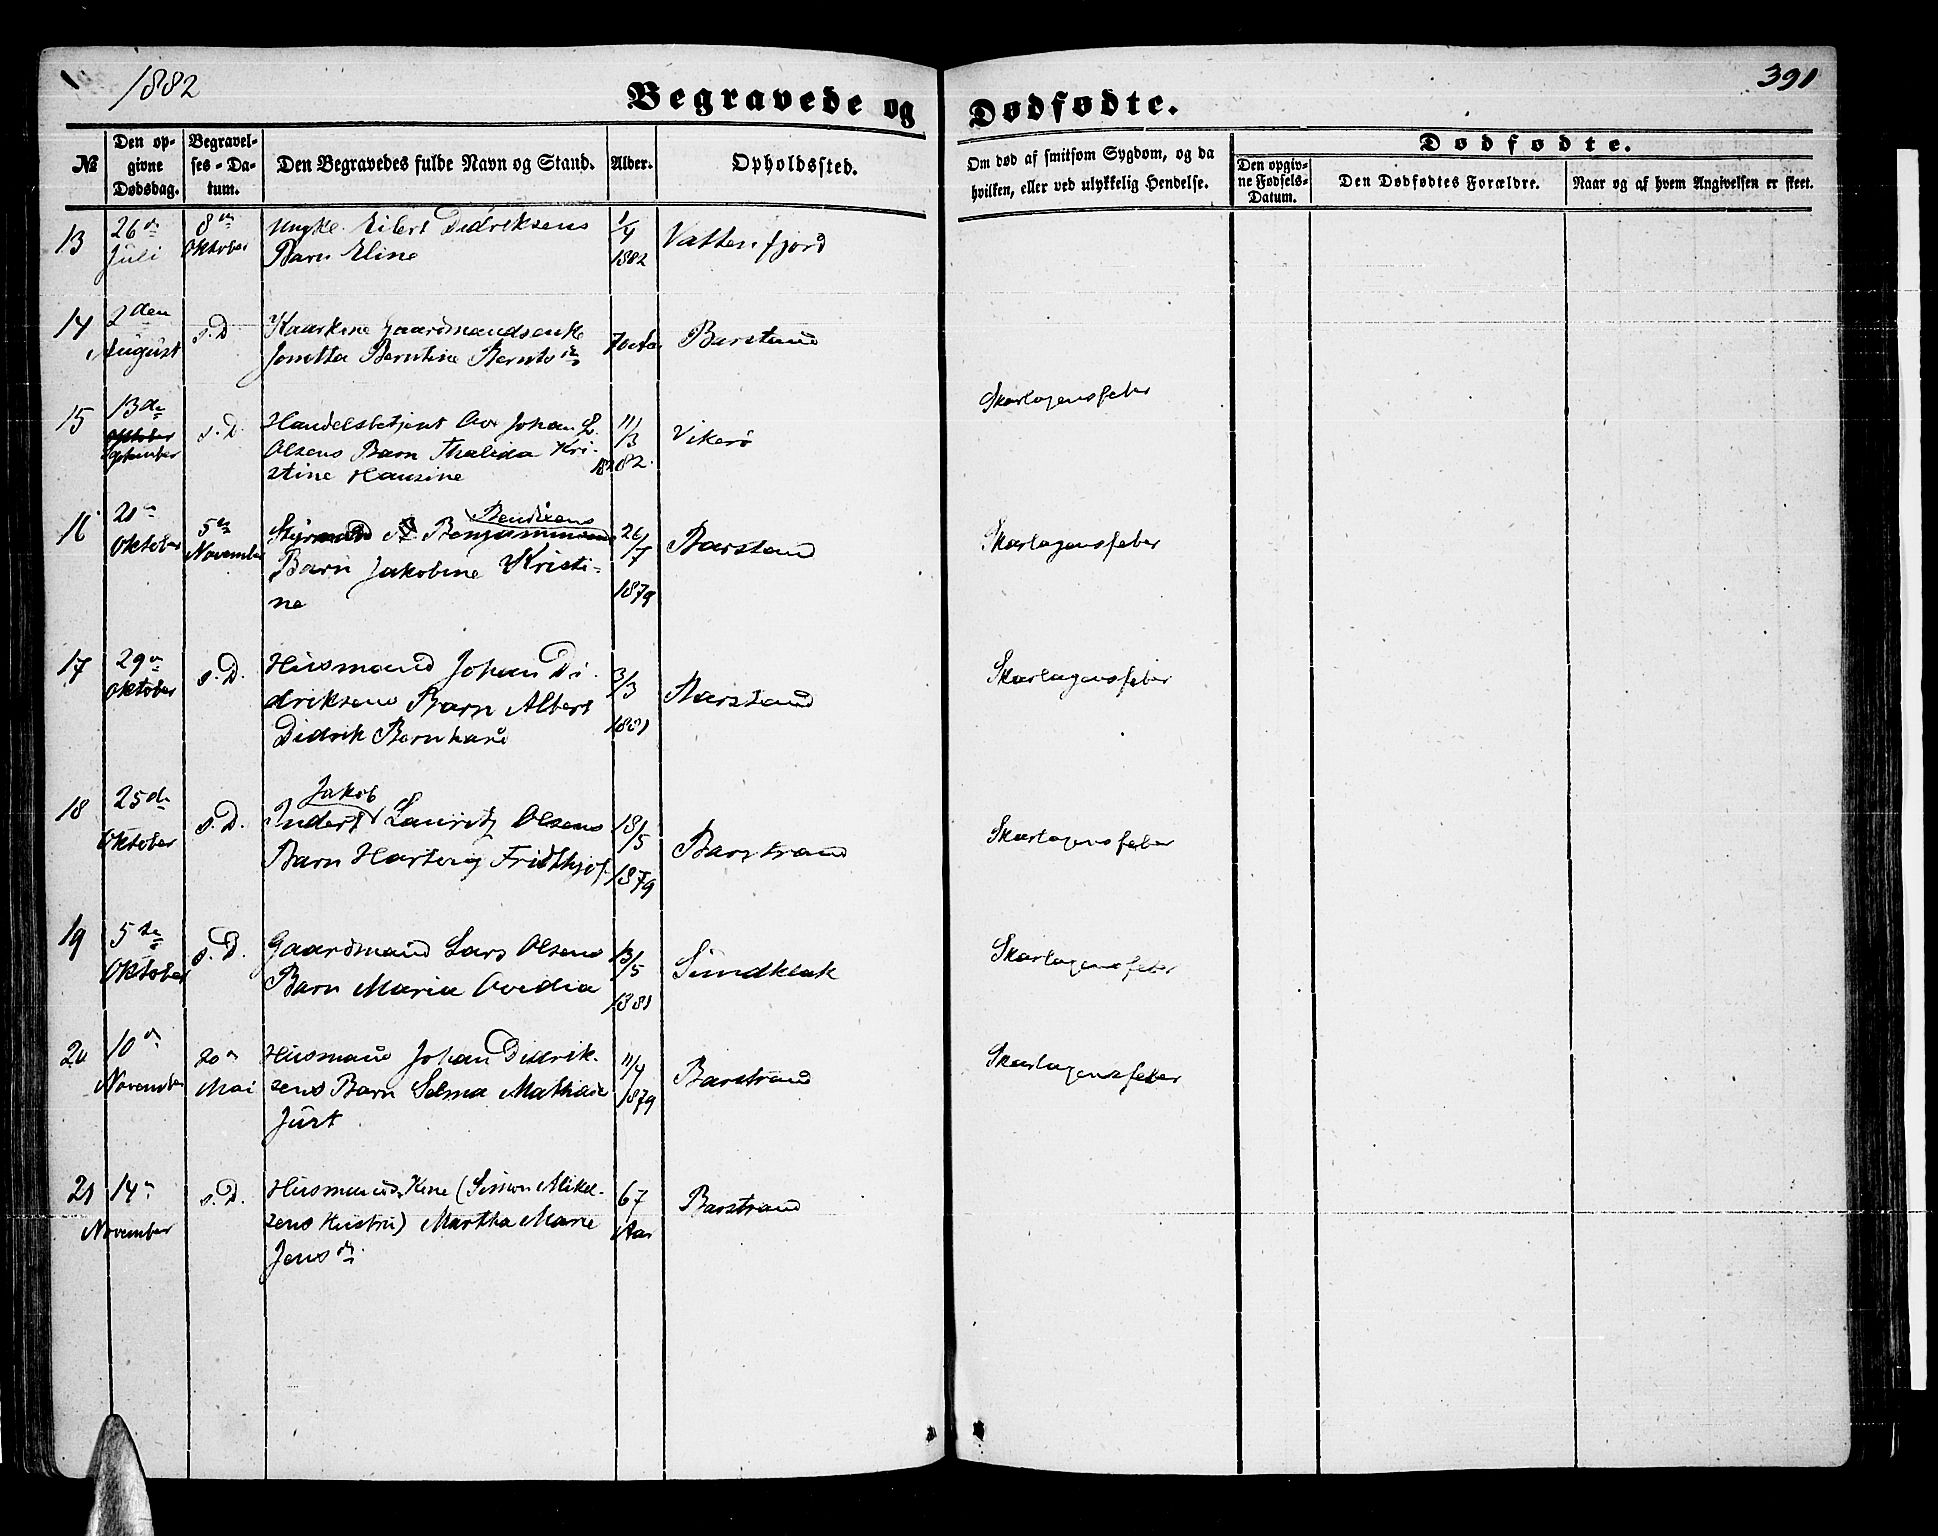 1882
Begravede og Dødfødte.
391
№
Den opgivne Dødsdag.
Begravelses-Datum.
Den Begravedes fulde Navn og Stand.
Alder.
Opholdssted.
Om død af smitsom Sygdom, og da hvilken, eller ved ulykkelig Hendelse.
Dødfødte.
Den opgivne Fødsels-Datum.
Den Dødfødtes Forældre.
Naar og af hvem Angivelsen er skeet.
13 26de Juli
8de Oktober
Ungk. Eilert Didriksens
Barn Eline
1/4 1882
Vattenfjord
14 2den August
s.D.
Gaardmandsenke
Berntine Bernts
Barstand
15 13de Oktober September
s.D.
Handelsbetjent Ove Johan L.
Olsens Barn Thalida Kri-
stine Hansine
11/13 1882
Vikerø
Skarlagensfeber
16 21de Oktober
5te November
Bendixens
Styrmand Benjaminsens
Barn Jakobine Kristi-
ne
26/7 1879
Barstand
Skarlagensfeber
17 29de Oktober
s.D.
Husmand Johan Di-
driksens Barn Albert
Didrik Bernhard
3/3 1881
Barstand
Skarlagensfeber
18 25de Oktober
s.D.
Jakob
Inderst Lauritz Olsens
Barn Hartvig Fridthjof
18/5 1879
Barstrand
Skarlagensfeber
19 5te Oktober
s.D.
Gaardmand Lars Olsens
Barn Maria Ovedia
13/5 1881
Sundklak
Skarlagensfeber
20 10de November
20de Mai
Husmand Johan Didrik-
sens Barn Selma Mathilde
Just
11/4 1879
Barstrand
Skarlagensfeber
21 14de November
s.D.
Husmands Kone (Simon Mikel-
sens Hustru) Martha Marie
Jensdr
67 Aar
Barstrand